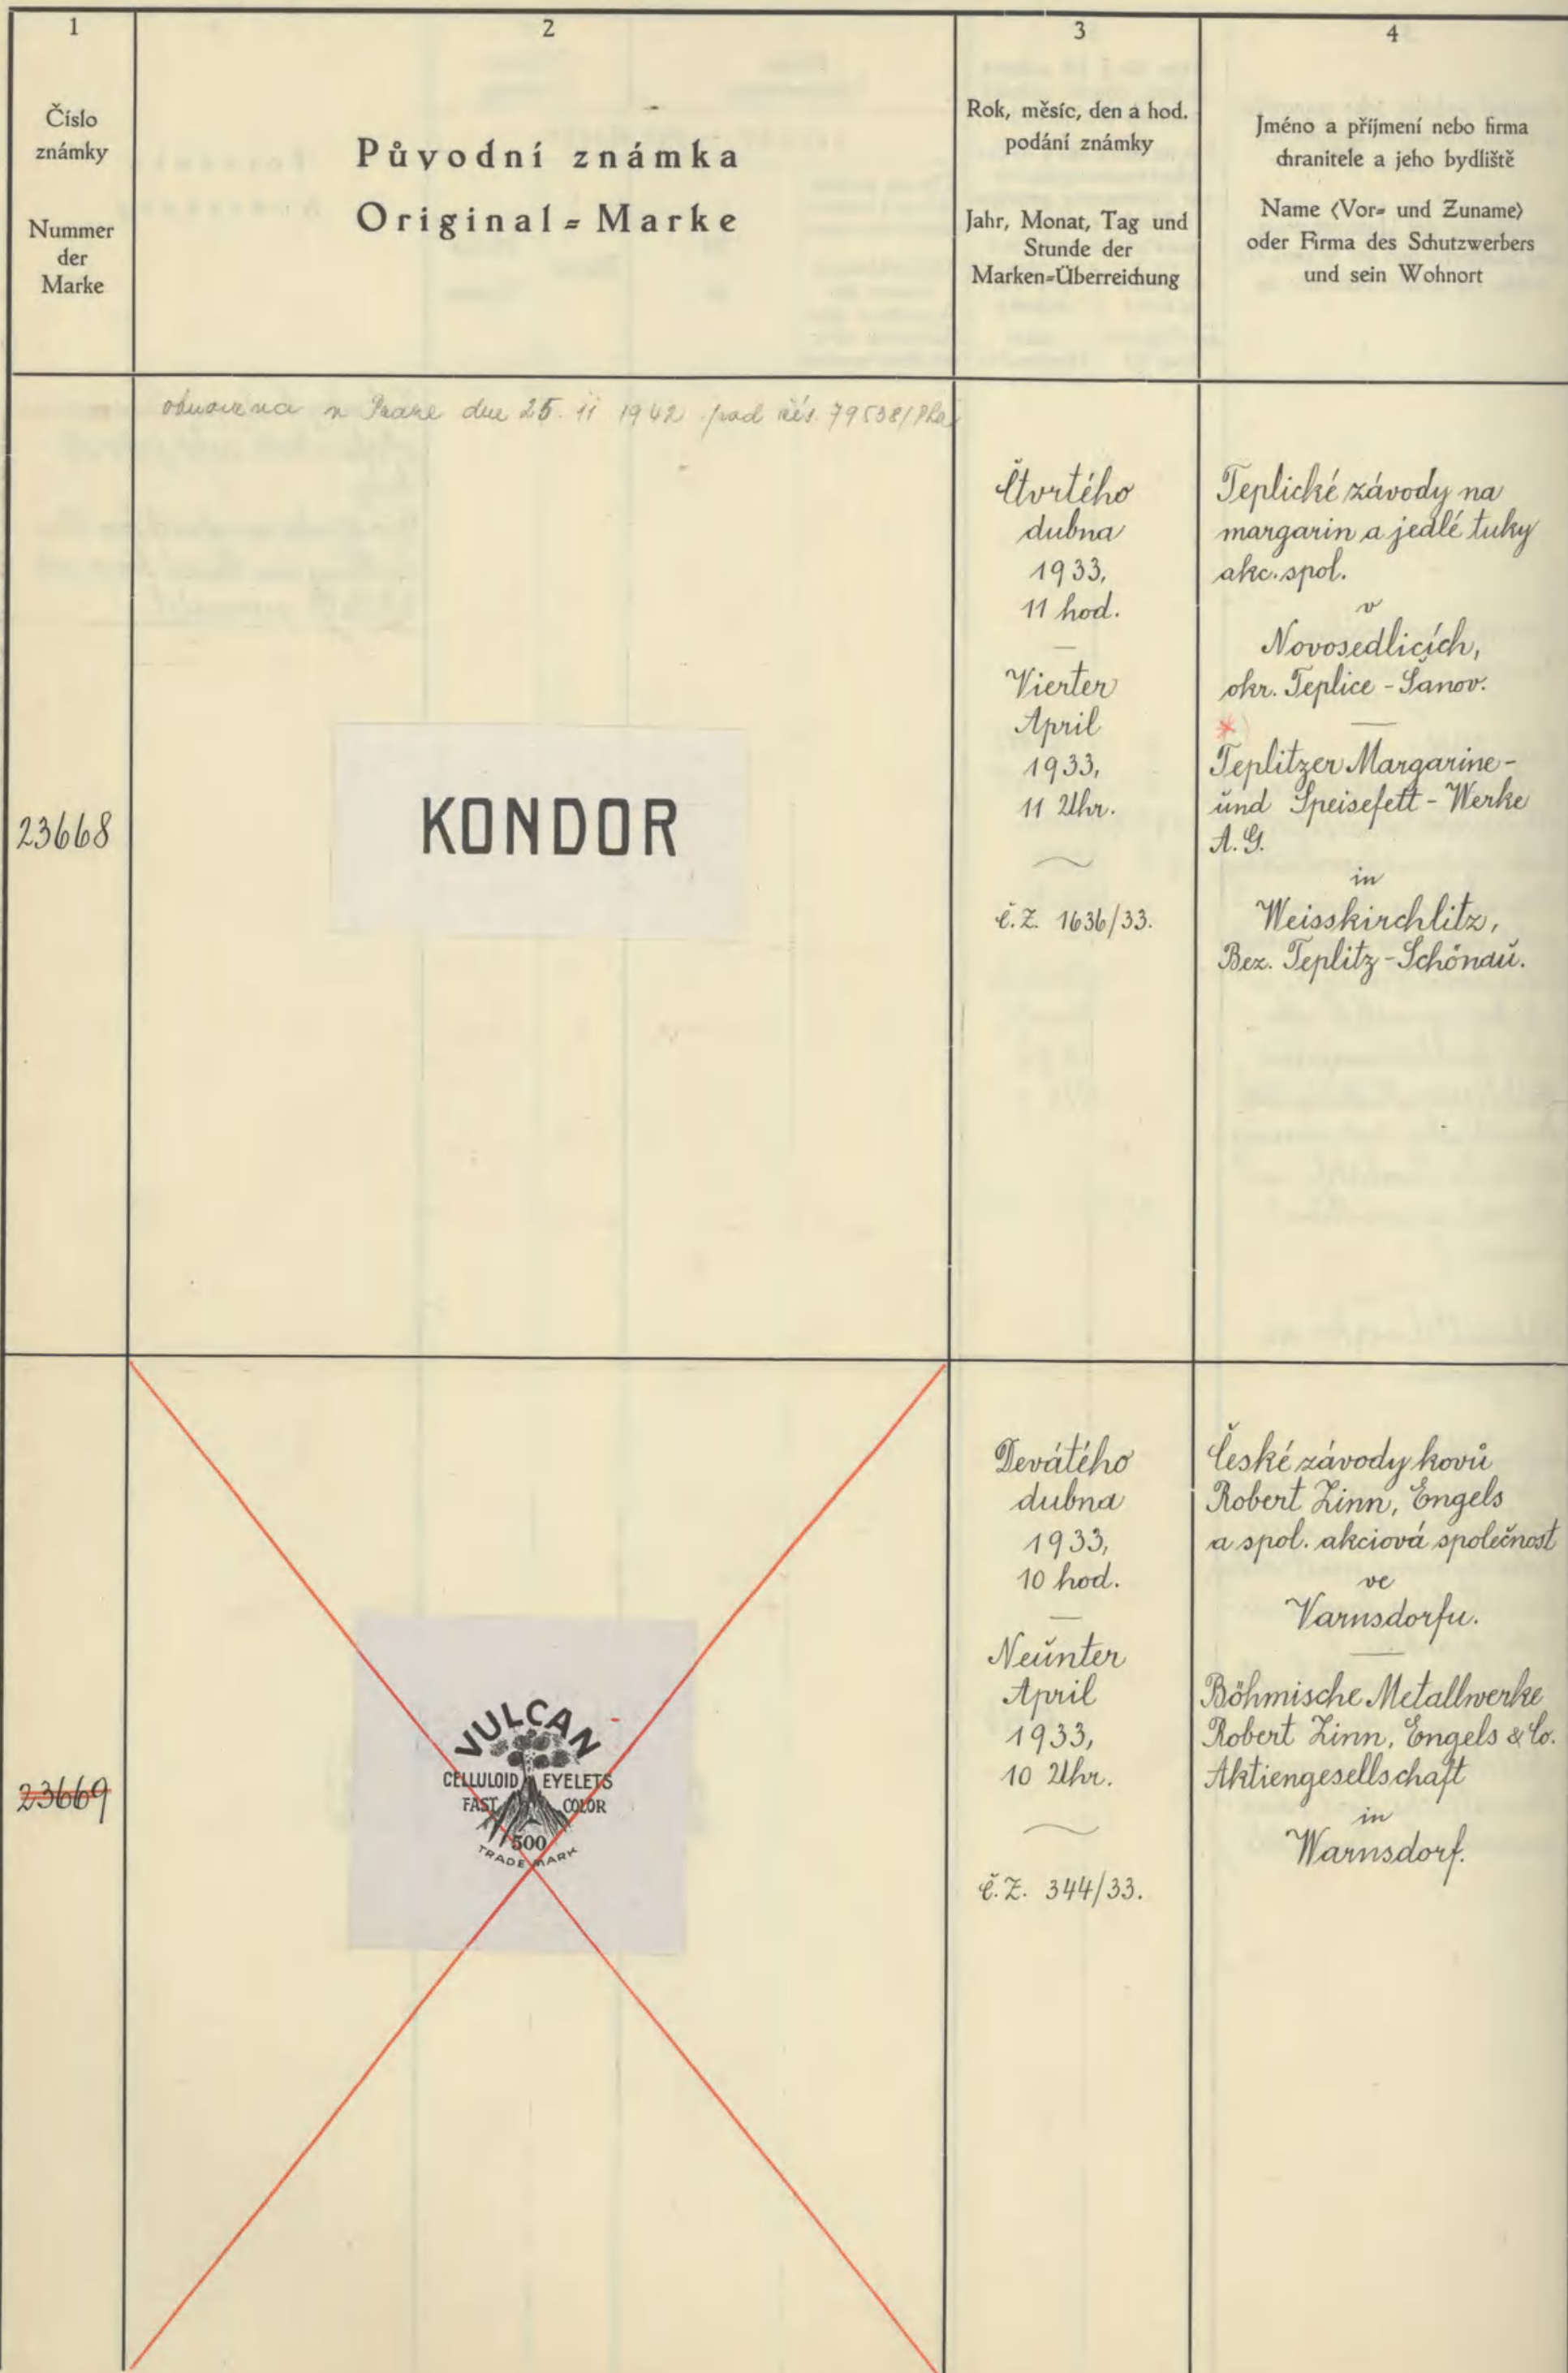 1
Číslo
známky
Nummer
der
Marke
2
Původní známka
Original=Marke
3
Rok, měsíc, den a hod.
podání známky
Jahr, Monat, Tag und
Stunde der
Marken=Überreichung
4
Jméno a příjmení nebo firma
chranitele a jeho bydliště
Name (Vor= und Zuname)
oder Firma des Schutzwerbers
und sein Wohnort
23668
obnovena v Praze dne 25. 11 1942 pod čís. 79538/Pha
KONDOR
Čtvrtého
dubna
1933,
11 hod.
Vierter
April
1933,
11 Uhr.
č.Z. 1636/33.
Teplické závody na
margarin a jedlé tuky
akc. spol.
v
Novosedlicích,
okr. Teplice - Šanov.
*)
Teplitzer Margarine-
und Speisefett - Werke
A.G.
in
Weisskirchlitz,
Bez. Teplitz - Schönau.
23669
VULCAN
CELLULOID EYELETS
FAST COLOR
500
TRADE MARK
Devátého
dubna
1933,
10 hod.
Neunter
April
1933,
10 Uhr.
č.Z. 344/33.
České závody kovů
Robert Zinn, Engels
a spol. akciová společnost
ve
Varnsdorfu.
Böhmische Metallwerke
Robert Zinn, Engels & Co.
Aktiengesellschaft
in
Warnsdorf.